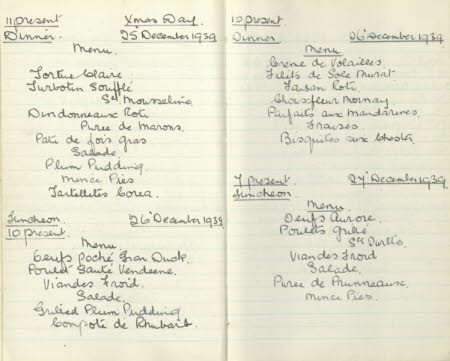 11 present Xmas Day.
Dinner. 25th December 1939
Menu.
Tortue Claire
Turbotin Soufflé
Sce Mousseline
Dindonneaux Roti
Puree de Marons.
Pate de fois gras
Salade
Plum Pudding
Mince Pies
Tartelettes
Luncheon 26th December 1939
10 present.
Menu
Oeufs Poché Gran Duck.
Poulet Sauté Vendeene.
Viandes Froid.
Salade
Grilled Plum Pudding
Compote de Rhubarb
10 present
Dinner 26th December 1939
Menu
Creme de Volailles
Filets de Sole Murat
Faisan Roti
Chouxfleur Mornay
Parfaits aux Mandarines
Fraises
Bisquites aux
7 present 27th December 1939
Luncheon
Menu
Oeufs Aurore.
Poulets Grillé
Sce
Viandes Froid
Salade.
Puree de Prunneause.
Mince Pies.